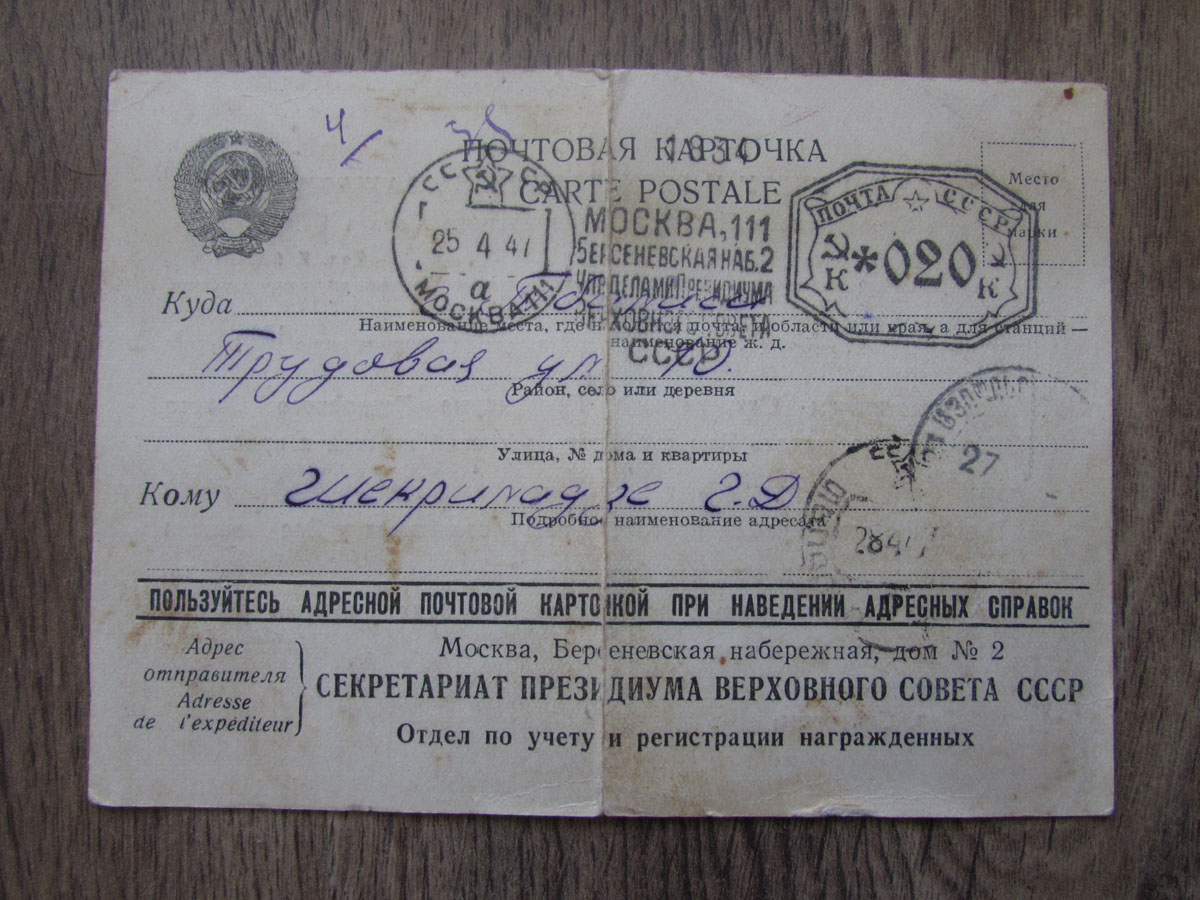 ПОЧТОВАЯ КАРТОЧКА
CARTE POSTALE
Место для марки
СССР
25 4 47
а
МОСКВА 111
МОСКВА, 111
БЕРСЕНЕВСКАЯ НАБ. 2
УПР. ДЕЛАМИ ПРЕЗИДИУМА
ВЕРХОВНОГО СОВЕТА
СССР
ПОЧТА СССР
К *020 К
Куда г. Тбилиси
Наименование места, где находится почта, и области или края, а для станций —
наименование ж. д.
Трудовая ул. 10.
Район, село или деревня
Улица, № дома и квартиры
27
Кому Шекриладзе Г.Д
Подробное наименование адресата
28 4 47
ПОЛЬЗУЙТЕСЬ АДРЕСНОЙ ПОЧТОВОЙ КАРТОЧКОЙ ПРИ НАВЕДЕНИИ АДРЕСНЫХ СПРАВОК
Адрес
отправителя
Adresse
de l'expéditeur
Москва, Берсеневская набережная, дом № 2
СЕКРЕТАРИАТ ПРЕЗИДИУМА ВЕРХОВНОГО СОВЕТА СССР
Отдел по учету и регистрации награжденных